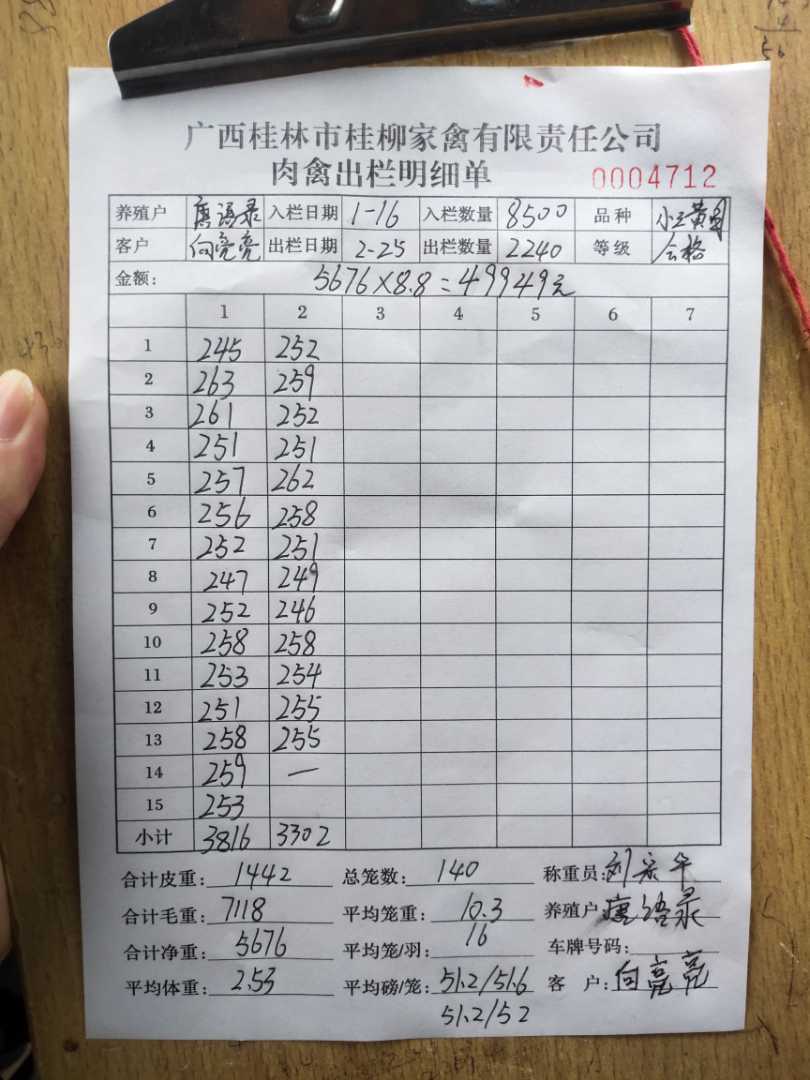 广西桂林市桂柳家禽有限责任公司
肉禽出栏明细单 0004712
养殖户 唐语录 入栏日期 1-16 入栏数量 8500 品种
客户 向亮亮 出栏日期 2-25 出栏数量 2240 等级 合格
金额: 5676×8.8=49949元
1 2 3 4 5 6 7
1 245 252
2 263 259
3 261 252
4 251 251
5 257 262
6 256 258
7 252 251
8 247 249
9 252 246
10 258 258
11 253 254
12 251 255
13 258 255
14 259 —
15 253
小计 3816 3302
合计皮重: 1442 总笼数: 140 称重员:
合计毛重: 7118 平均笼重: 10.3 养殖户: 唐语录
合计净重: 5676 平均笼/羽: 16 车牌号码:
平均体重: 2.53 平均磅/笼: 51.2/51.6 客户: 向亮亮
51.2/52